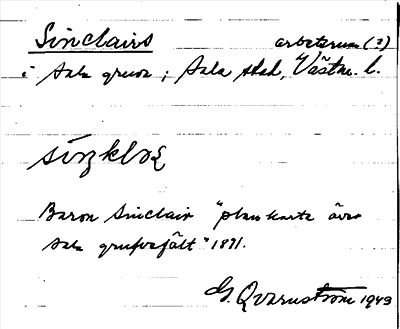 Sinclairs arbetsrum (?)
i Sala gruva ; Sala stad, Västm. l.
Baron Sinclair "plankarta över
Sala grufvefält" 1871.
G. Qvarnström 1943